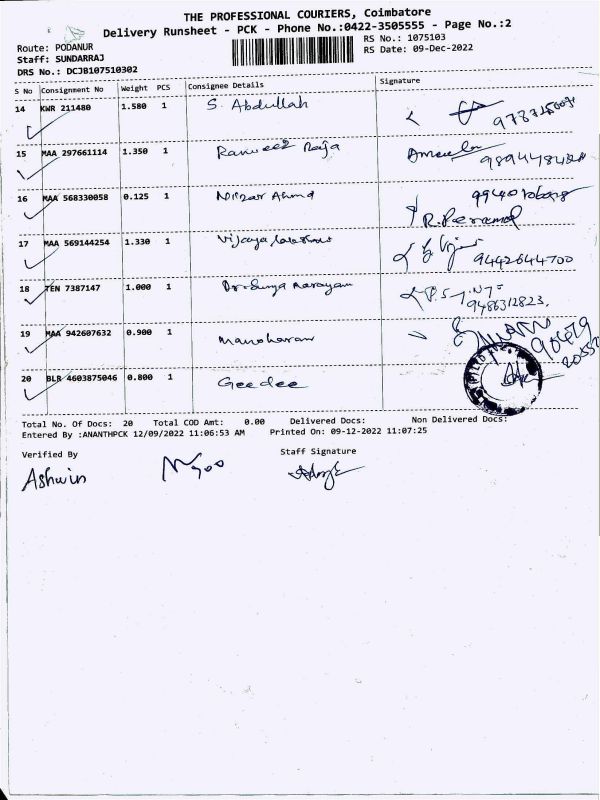 THE PROFESSIONAL COURIERS, Coimbatore
Delivery Runsheet - PCK - Phone No.:0422-3505555 - Page No.:2
Route: PODANUR RS No.: 1075103
Staff: SUNDARRAJ RS Date: 09-Dec-2022
DRS No.: DCJB107510302
S No Consignment No Weight PCS Consignee Details Signature
14 KWR 211480 1.580 1 S. Abdullah
15 MAA 297661114 1.350 1 Ranveer Raja
16 MAA 568330058 0.125 1 Nizar Ahmd
R. Perumal
17 MAA 569144254 1.330 1 9442644700
18 TEN 7387147 1.000 1 Dr. Surya Narayan
9486312823.
19 MAA 942607632 0.900 1 Manoharan
20 BLR 4603875046 0.800 1 Geedee
Total No. Of Docs: 20 Total COD Amt: 0.00 Delivered Docs: Non Delivered Docs:
Entered By :ANANTHPCK 12/09/2022 11:06:53 AM Printed On: 09-12-2022 11:07:25
Verified By Staff Signature
Ashwin